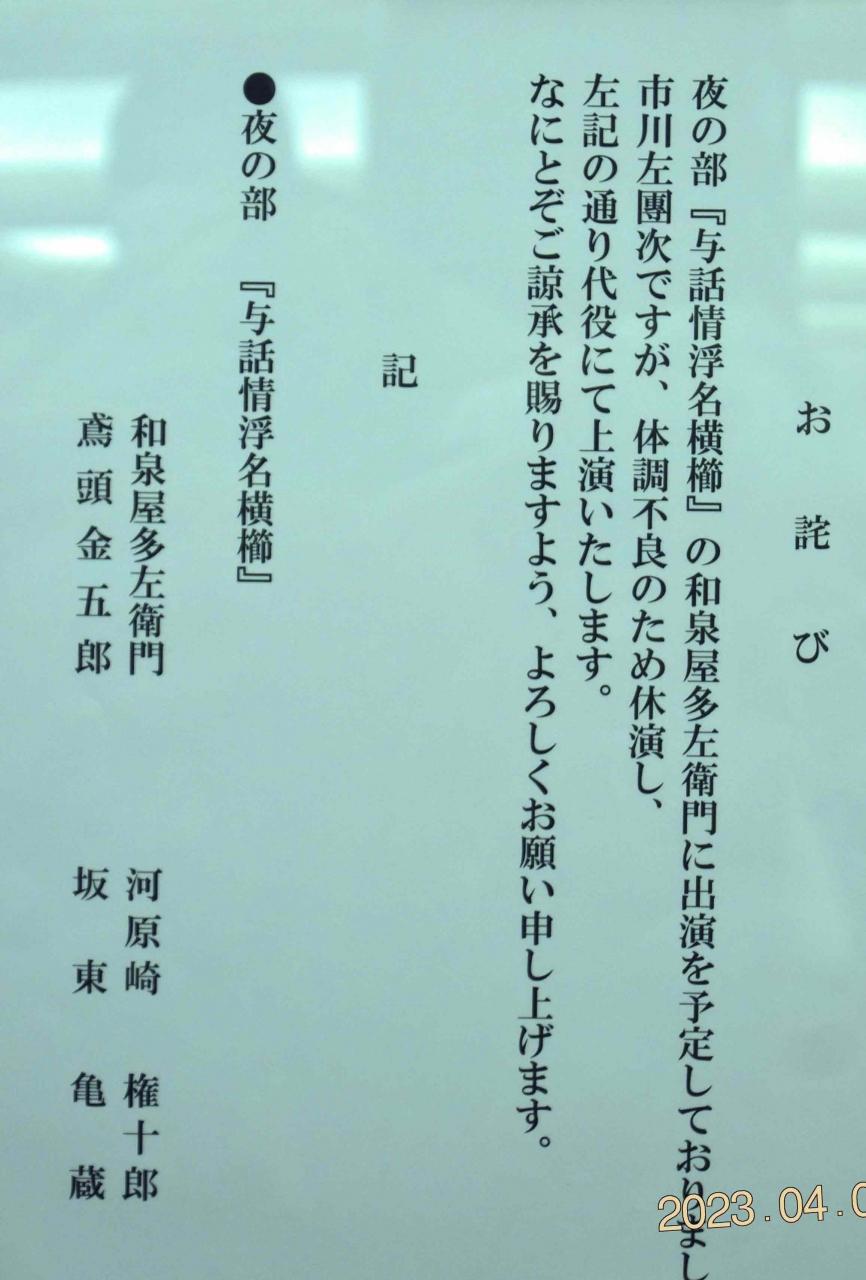 お詫び
夜の部『与話情浮名横櫛』の和泉屋多左衛門に出演を予定しておりまし
市川左團次ですが、体調不良のため休演し、
左記の通り代役にて上演いたします。
なにとぞご諒承を賜りますよう、よろしくお願い申し上げます。
記
●夜の部 『与話情浮名横櫛』
和泉屋多左衛門 河原崎 権十郎
鳶頭金五郎 坂東 亀蔵
2023.04.0